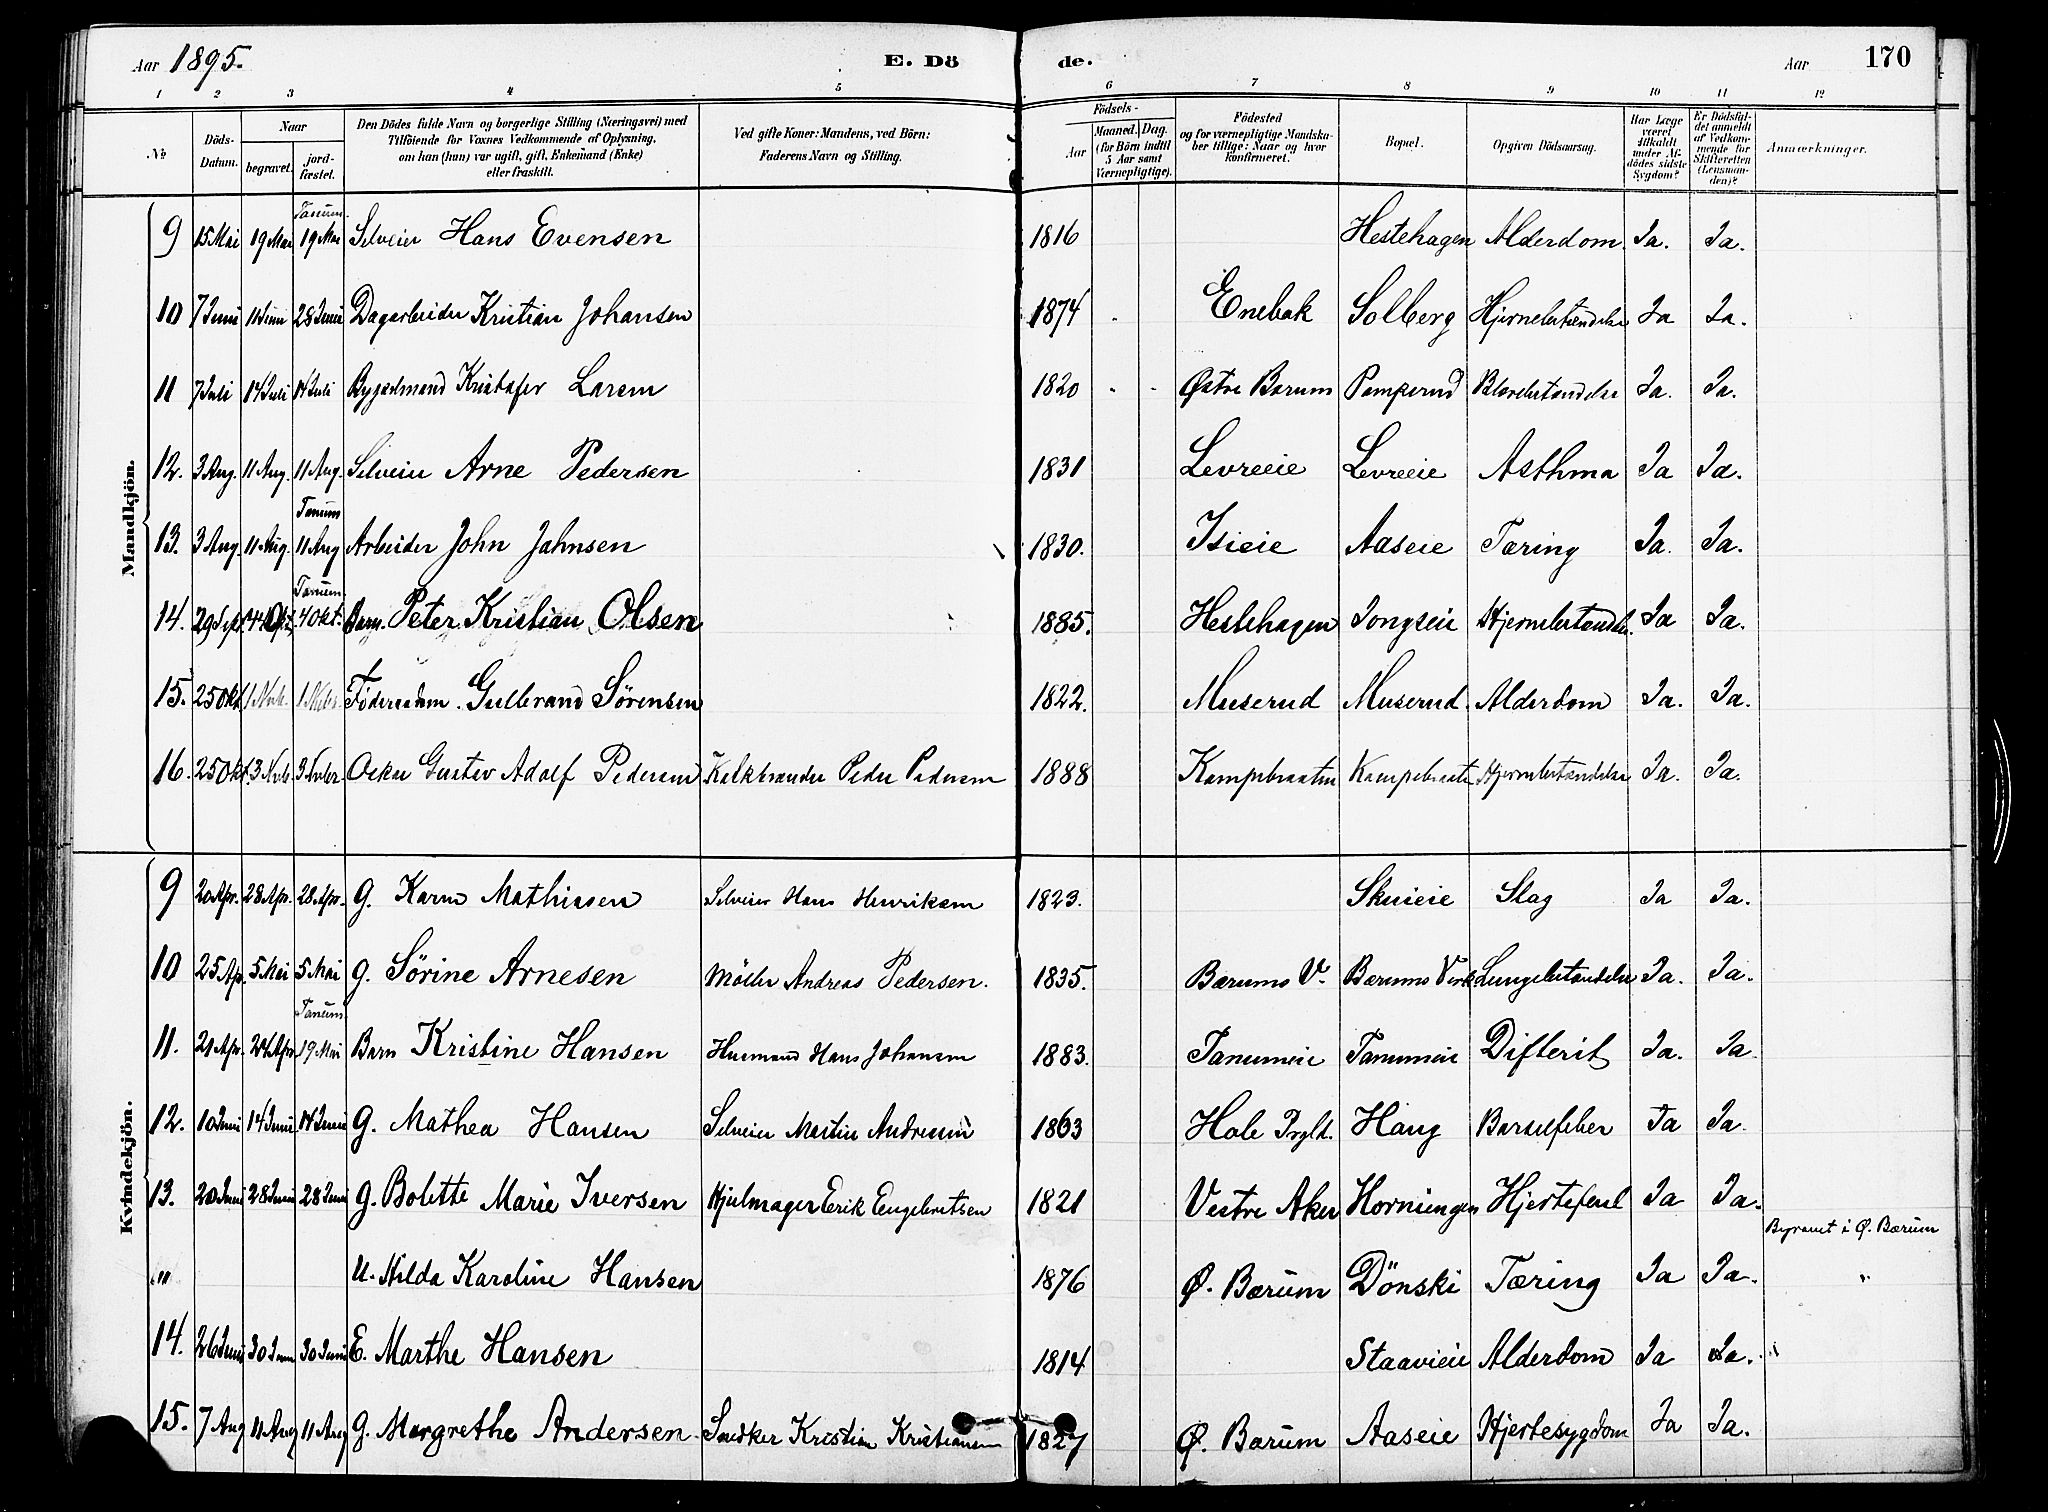 Aar 1895. E. Dö de. Aar 170
1 2 3 4 5 6 7 8 9 10 11 12
No
Döds-Datum.
Naar
begravet.
jord-fæstet.
Den Dödes fulde Navn og borgerlige Stilling (Næringsvei) med
Tilföiende for Voxnes Vedkommende af Oplysning,
om han (hun) var ugift, gift, Enkemand (Enke)
eller fraskilt.
Ved gifte Koner: Mandens, ved Börn:
Faderens Navn og Stilling.
Födsels-
Aar
Maaned. Dag.
(for Börn indtil
5 Aar samt
Værnepligtige).
Födested
og for værnepligtige Mandska-
ber tillige: Naar og hvor
konfirmeret.
Bopæl.
Opgiven Dödsaarsag.
Har Læge
været
tilkaldt
under Af-
dödes sidste
Sygdom?
Er Dödsfal-
det anmeldt
af Vedkom-
mende for
Skifteretten
(Lensman-
den)?
Anmærkninger.
Mandkjön.
Tanum.
9 15 Mai 19 Mai 19 Mai Selveier Hans Evensen 1816 Hestehagen Alderdom. Ja. Ja.
10 7 Juni 28 Juni Dagarbeider Kristian Johansen 1874 Enebak Solberg Hjernebetændelse Ja Ja.
11 7 Juli 14 Juli 14 Juli Bygselmand Kristofer Larsen 1820 Østre Bærum Pamperud Blærebetændelse Ja. Ja.
12. 3 Aug. 11 Aug. 11 Aug. Selveier Arne Pedersen 1831 Levreeie Levreeie Asthma Ja Ja.
Tanum
13. 3 Aug 11 Aug. 11 Aug Arbeider John Jahnsen 1830. Isieie Aaseie Tæring Ja. Ja.
Tanum.
14. 29 Sept. 4 Okt. 4 Okt. Barn. Peter Kristian Olsen 1885. Hestehagen Jongseie Hjernebetændelse. Ja Ja.
15. 25 Okt 1 Novb. 1 Novbr. Föderaadsm. Gulbrand Sörensen 1822. Muserud Muserud. Alderdom Ja. Ja.
16. 25 Okt. 3 Novb 3 Novbr. Oskar Gustav Adolf Pedersen Kalkbrænder Peder Pedersen 1888 Kampebraaten Kampebraaten Hjernebetændelse Ja. Ja.
Kvindekjön.
9 20 Apr. 28 Apr. 28 Apr. G. Karen Mathisen Selveier Hans Henriksen 1823. Skuieie Slag Ja Ja.
10 25 Ap. 5 Mai 5 Mai G. Sörine Arnesen Möller Andreas Pedersen. 1835. Bærums V. Bærums Verk Lungebetændelse Ja. Ja.
Tanum.
11. 21 Apr. 24 Apr 19 Mai Barn Kristine Hansen Husmand Hans Johansen 1883. Tanumeie Tanumeie Difterit Ja. Ja
12. 10 Juni 14 Juni 14 Juni G. Mathea Hansen Selveier Martin Andersen 1863 Hole Prgld. Haug Barselfeber Ja Ja.
13. 20 Juni 28 Juni 28 Juni G. Bolette Marie Iversen Hjulmager Erik Engebretsen 1821 Vestre Aker Horniengen Hjertefeil Ja Ja.
Begravet i Ø. Bærum
" U. Hilda Karoline Hansen 1876 Ø. Bærum Dönski Tæring Ja Ja. "
14. 26 Juni 30 Juni 30 Juni E. Marthe Hansen 1814 Staavieie Alderdom Ja Ja.
15. 7 Aug 11 Aug 11 Aug G. Margrethe Andersen Snedker Kristian Kristiansen 1827 Ø. Bærum Aaseie Hjertesygdom Ja Ja.